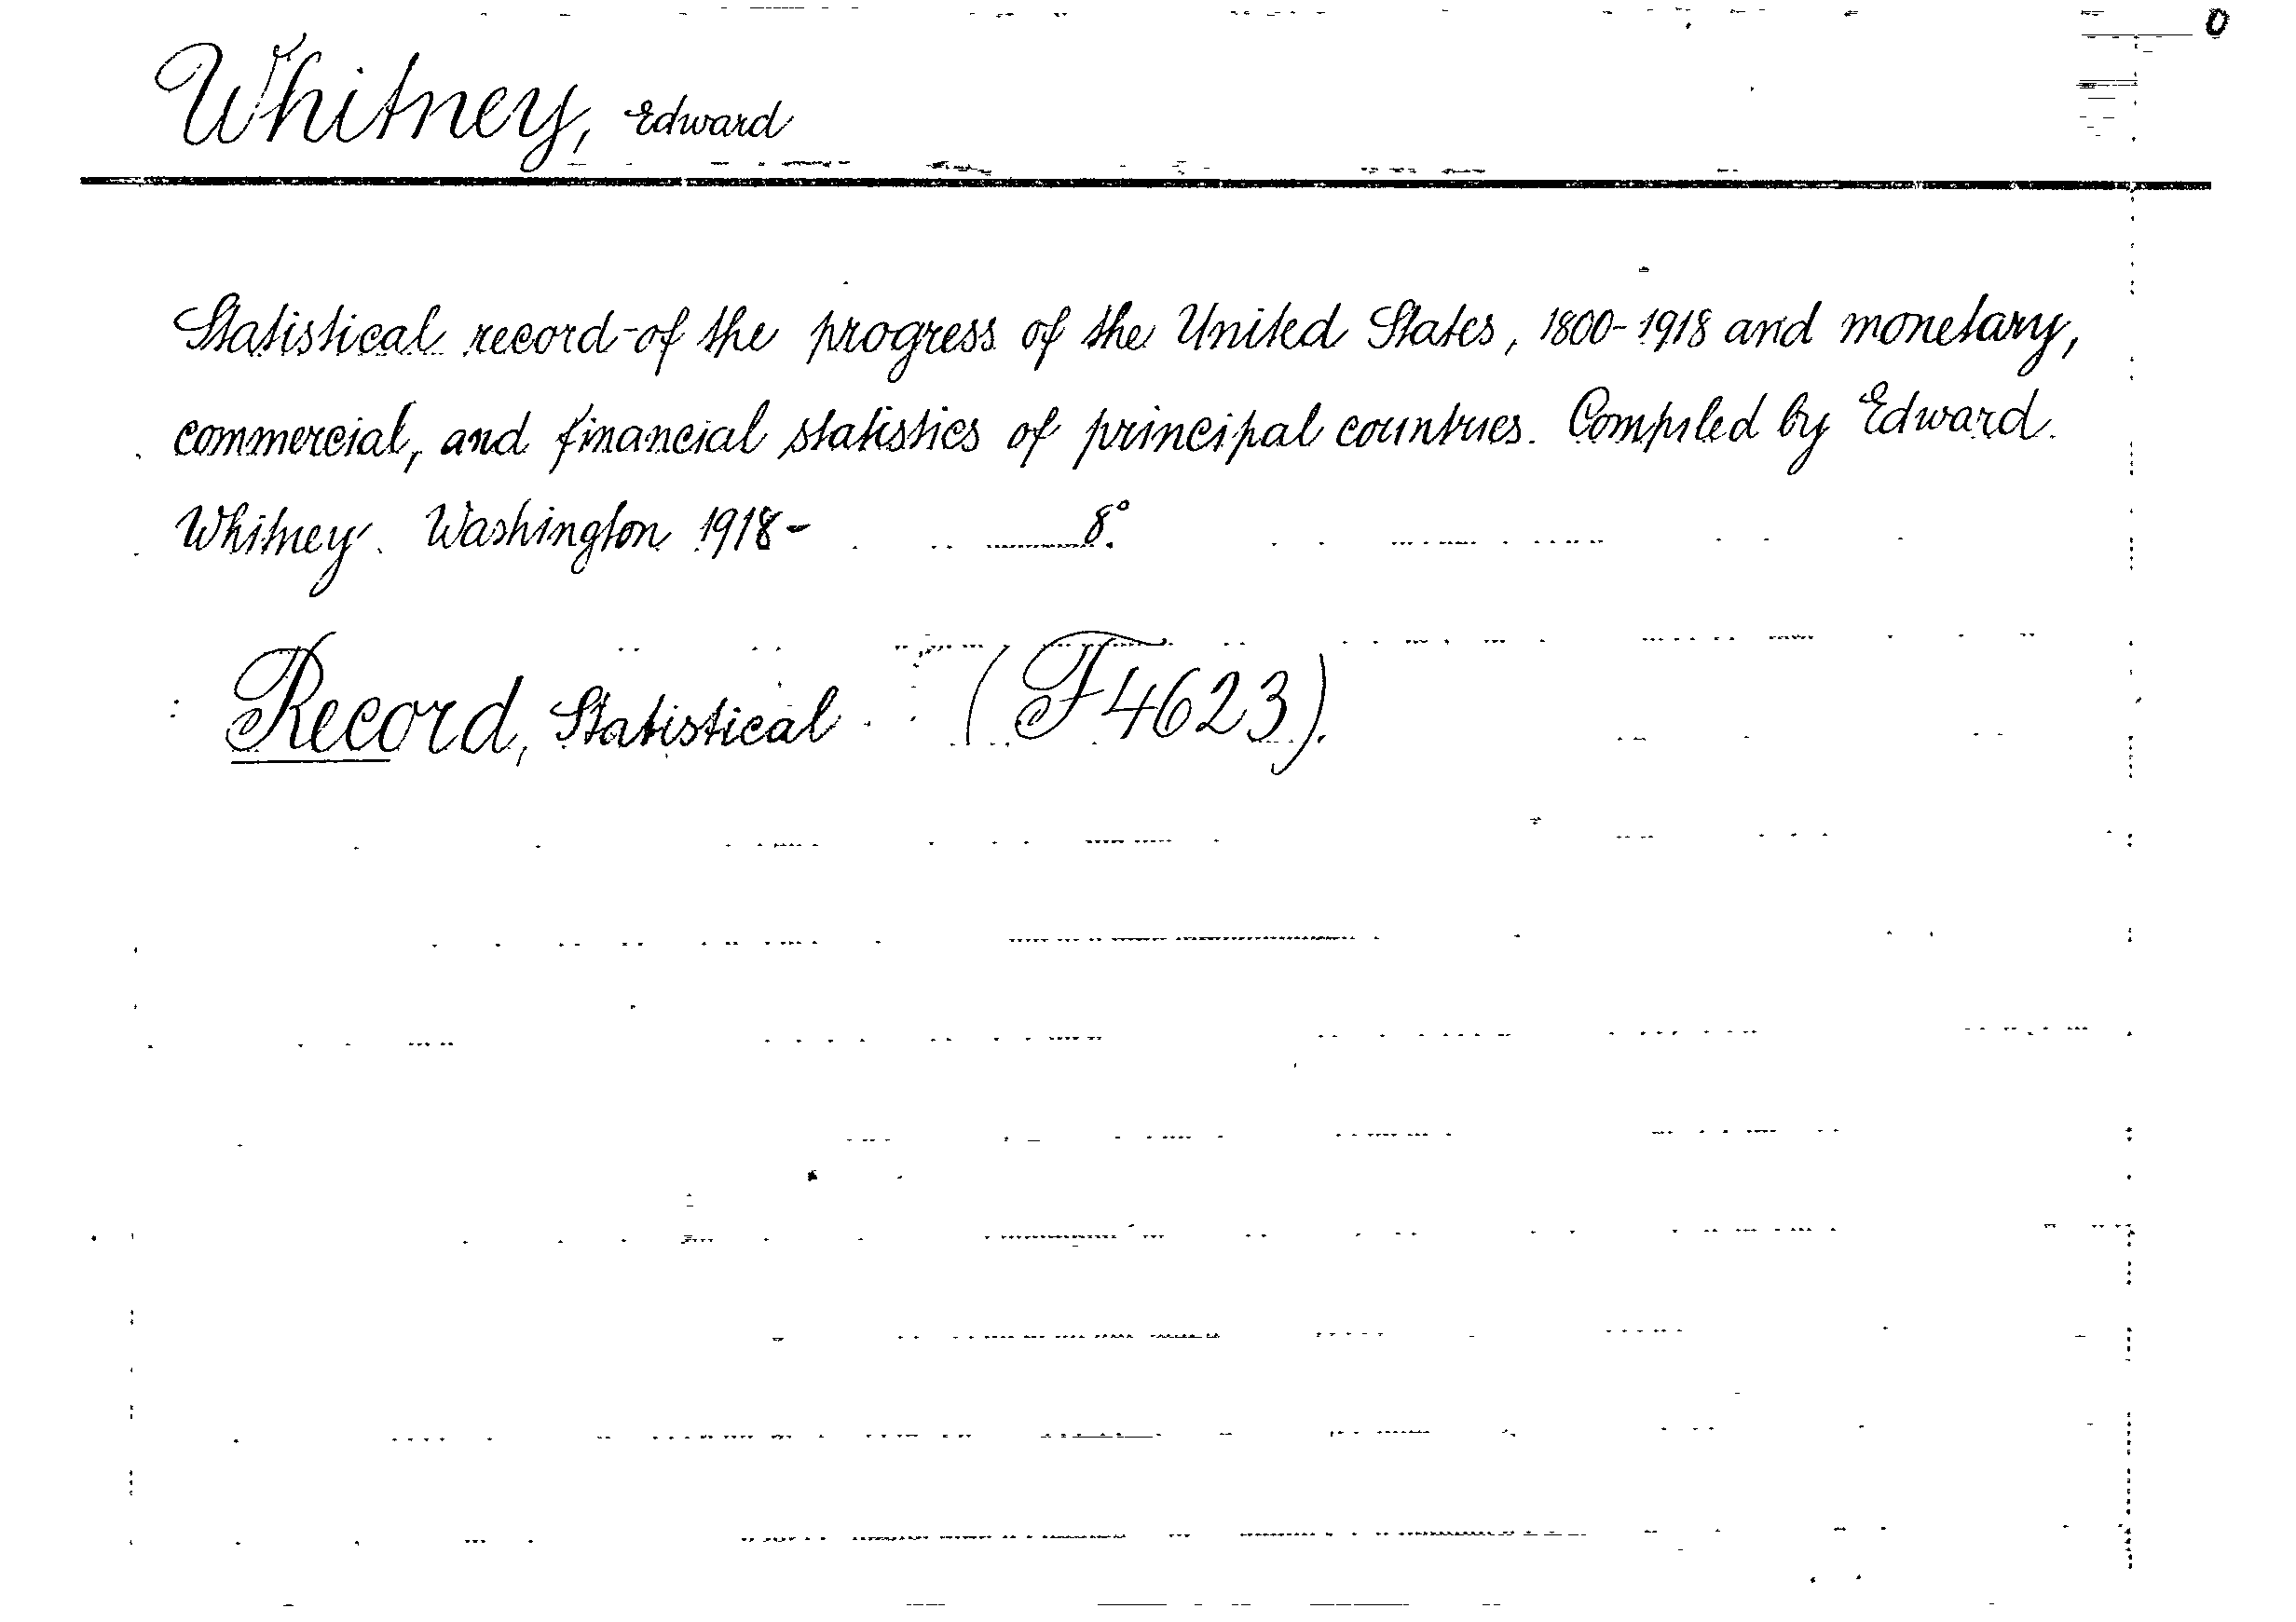 0
Whitney, Edward
Statistical record of the progress of the United States, 1800-1918 and monetary,
commercial, and financial statistics of principal countries. Compiled by Edward
Whitney. Washington 1918- 8°.
Record, Statistical (F4623).